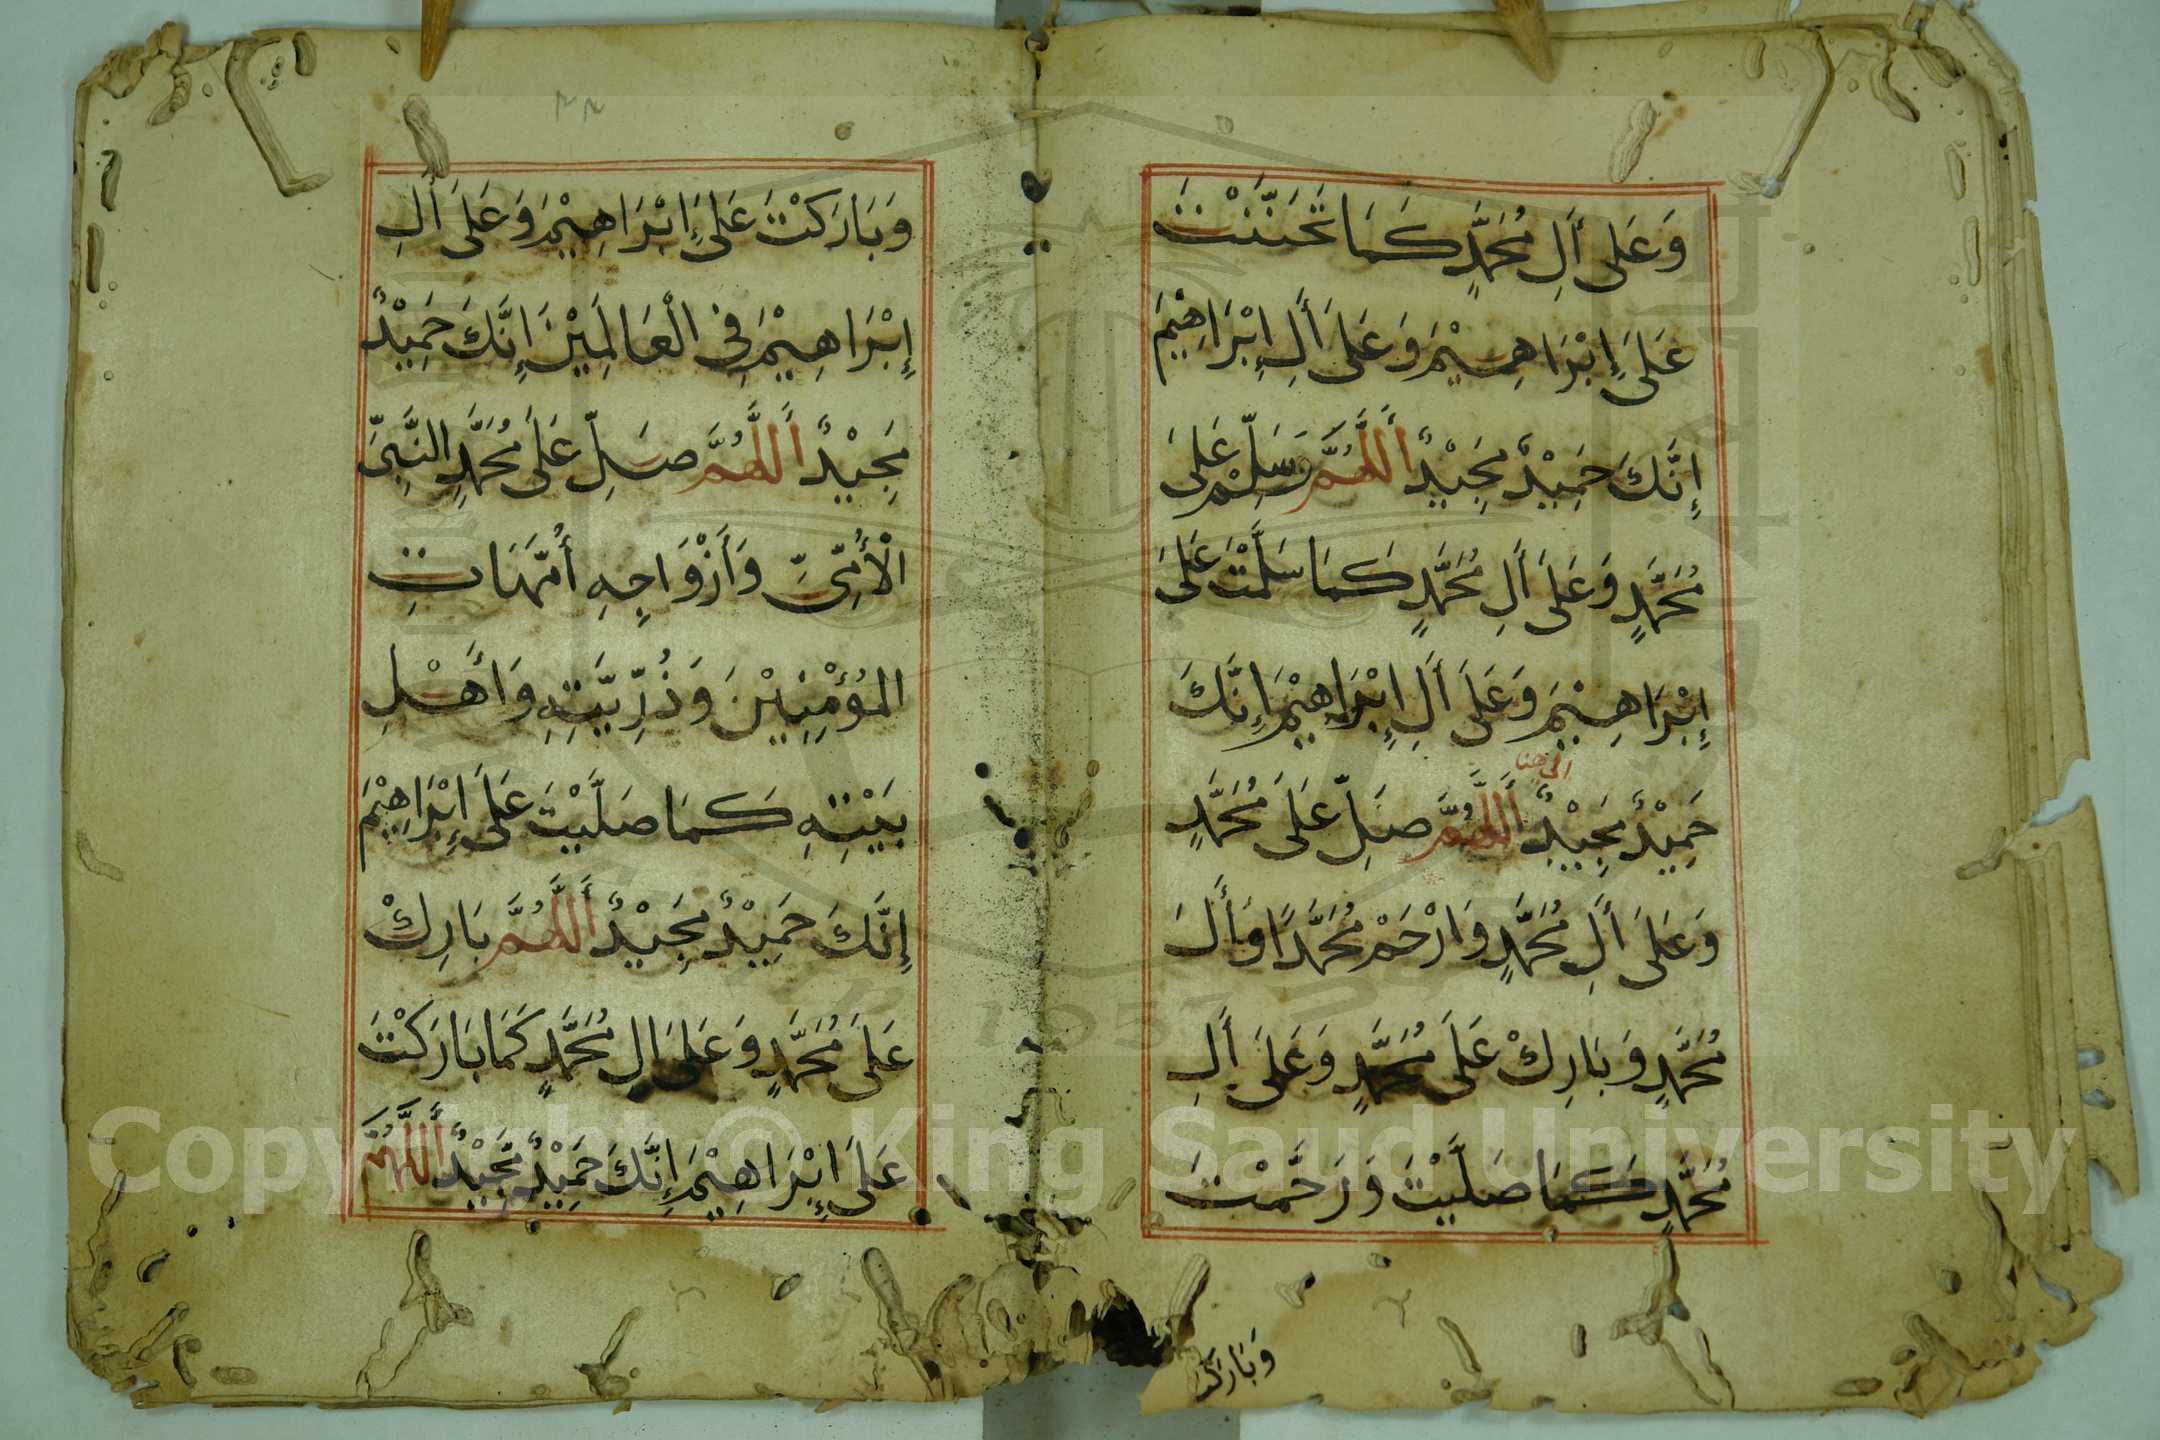 وَعَلَى أَلِ مُحَمَّدٍ كَمَا تَحَنَّنْتَ
عَلَى إِبْرَاهِيْمَ وَعَلَى أَلِ إِبْرَاهِيْمَ
إِنَّكَ حَمِيْدٌ مَجِيْدٌ أَللَّهُمَّ وَسَلِّمْ عَلَى
مُحَمَّدٍ وَعَلَى أَلِ مُحَمَّدٍ كَمَا سَلَّمْتَ عَلَى
إِبْرَاهِيْمَ وَعَلَى أَلِ إِبْرَاهِيْمَ إِنَّكَ
الى هنا
حَمِيْدٌ مَجِيْدٌ أَللَّهُمَّ صَلِّ عَلَى مُحَمَّدٍ
وَعَلَى أَلِ مُحَمَّدٍ وَارْحَمْ مُحَمَّدًا وَأَلَ
مُحَمَّدٍ وَبَارِكْ عَلَى مُحَمَّدٍ وَعَلَى أَلِ
مُحَمَّدٍ كَمَا صَلَّيْتَ وَرَحَّمْتَ
وَبَارَكْ
٢٢
وَبَارَكْتَ عَلَى إِبْرَاهِيْمَ وَعَلَى أَلِ
إِبْرَاهِيْمَ فِي الْعَالَمِيْنَ إِنَّكَ حَمِيْدٌ
مَجِيْدٌ أَللَّهُمَّ صَلِّ عَلَى مُحَمَّدٍ النَّبِيِّ
الْأُمِّيِّ وَأَزْوَاجِهِ أُمَّهَاتِ
المُؤْمِنِيْنَ وَذُرِّيَّتِهِ وَأَهْلِ
بَيْتِهِ كَمَا صَلَّيْتَ عَلَى إِبْرَاهِيْمَ
إِنَّكَ حَمِيْدٌ مَجِيْدٌ أَللَّهُمَّ بَارِكْ
عَلَى مُحَمَّدٍ وَعَلَى الِ مُحَمَّدٍ كَمَا بَارَكْتَ
عَلَى إِبْرَاهِيْمَ إِنَّكَ حَمِيْدٌ مَجِيْدٌ أَللَّهُمَّ
Copyright © King Saud University
1957